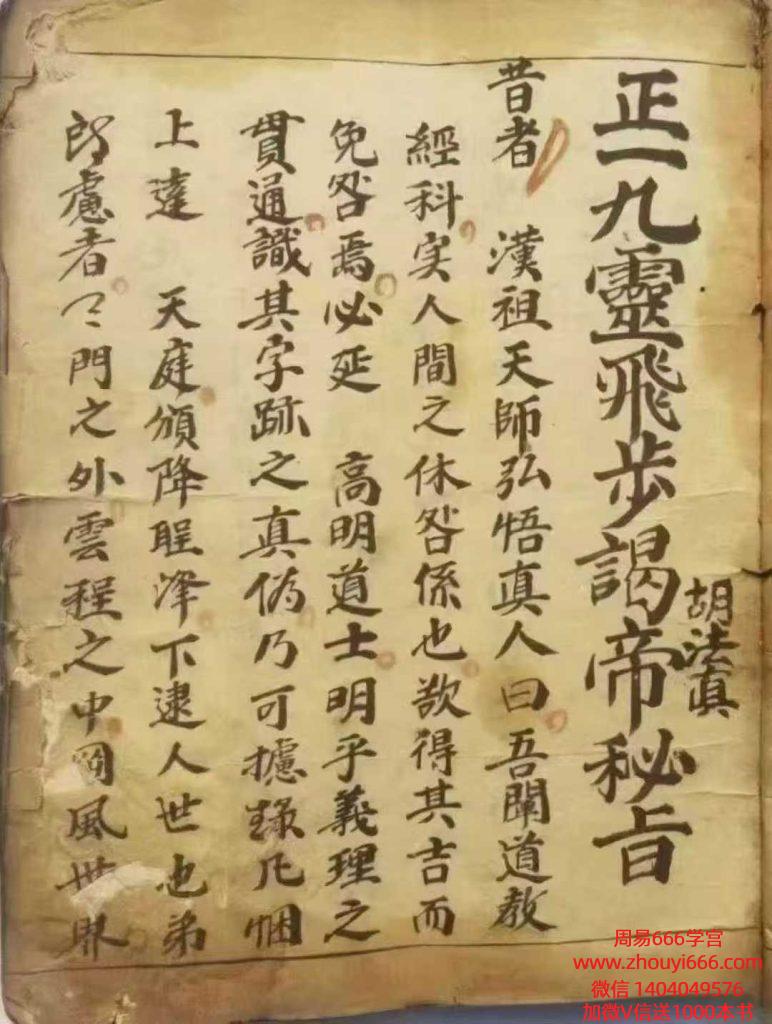 正一九靈飛步謁帝秘旨
胡法真
昔者 漢祖天師弘悟真人曰吾聞道教
經科实人間之休咎係也欲得其吉而
免咎焉必延 高明道士明乎義理之
貫通識其字跡之真偽乃可據錄凡悃
上達 天庭頒降聖澤下逮人世也弟
慮者 門之外雲程之中罡風世界
周易666学宫
www.zhouyi666.com
微信 1404049576
加微V信送1000本书